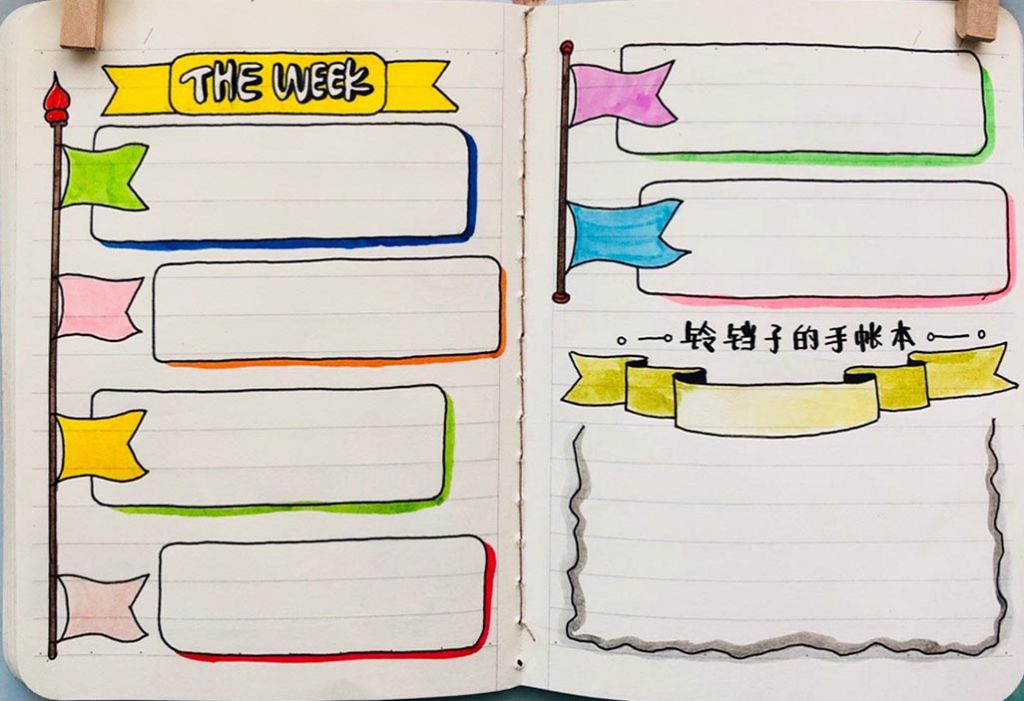 THE WEEK
铃铛子的手帐本